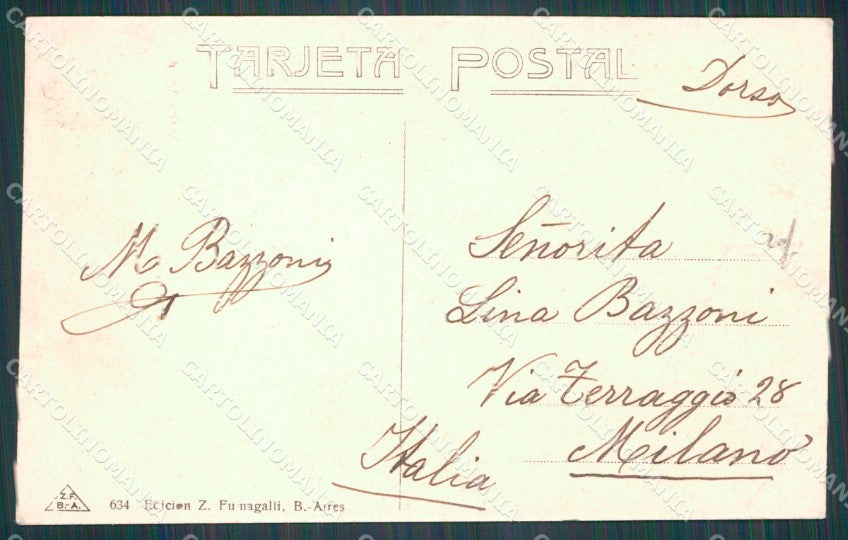 TARJETA POSTAL
Dorso
M Bazzoni
Señorita
Lina Bazzoni
Via Terraggio 28
Milano
Italia
Z.F.
B.-A.
634 Edicion Z. Fumagalli, B.-Aires
CARTOLINOMANIA